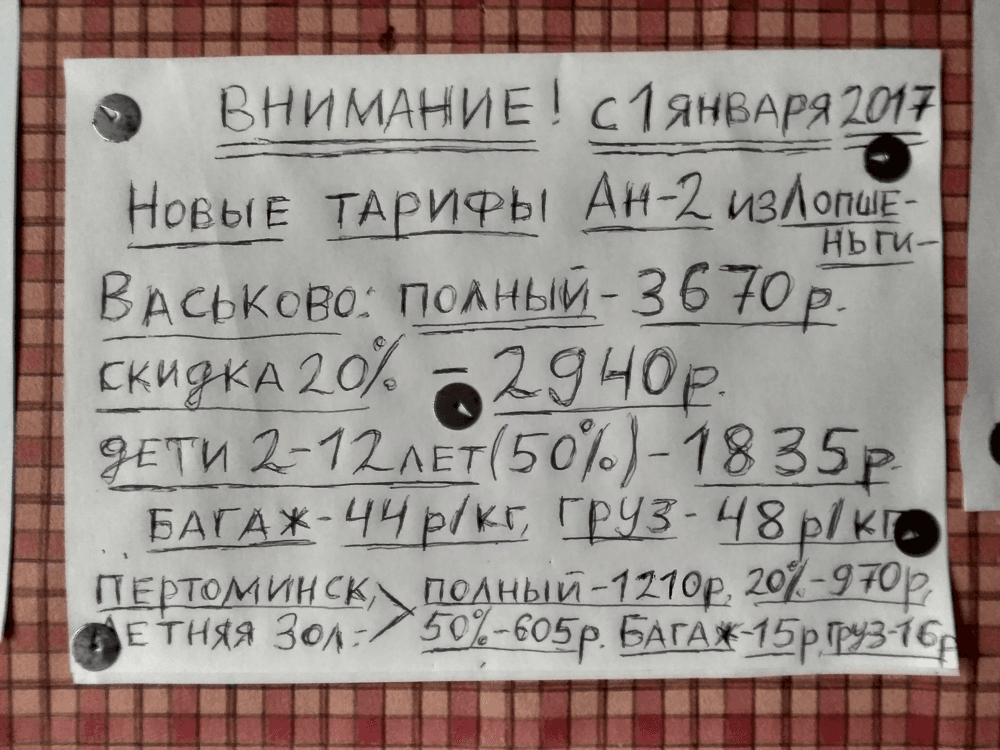 ВНИМАНИЕ! С 1 ЯНВАРЯ 2017
НОВЫЕ ТАРИФЫ АН-2 ИЗ ЛОПШЕ-
НЬГИ-
ВАСЬКОВО: ПОЛНЫЙ - 3670 р.
СКИДКА 20% - 2940р.
ДЕТИ 2-12 ЛЕТ (50%) - 1835р.
БАГАЖ - 44 р/кг, ГРУЗ - 48 р/кг
ПЕРТОМИНСК, ПОЛНЫЙ - 1210р, 20% - 970р,
ЛЕТНЯЯ ЗОЛ.- 50% - 605р. БАГАЖ - 15р, ГРУЗ - 16р